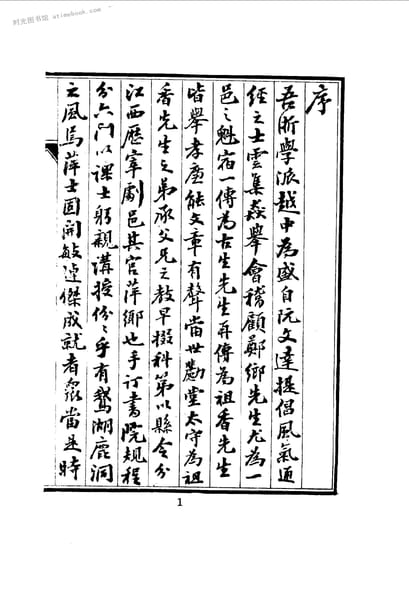 时光图书馆 - atimebook.com
序
吾浙學派越中為盛自阮文達提倡風氣通
經之士雲集猋舉會稽顧鄭鄉先生尤為一
邑之魁宿一傳為古生先生再傳為祖香先生
皆舉孝廉能文章有聲當世勸堂太守為祖
香先生之弟承父兄之教早掇科第以縣令分
江西歷宰劇邑其官萍鄉也手訂書院規程
分六門以課士躬親講授份〻乎有鵝湖鹿洞
之風焉萍士固開敏達傑成就者衆當是時
1